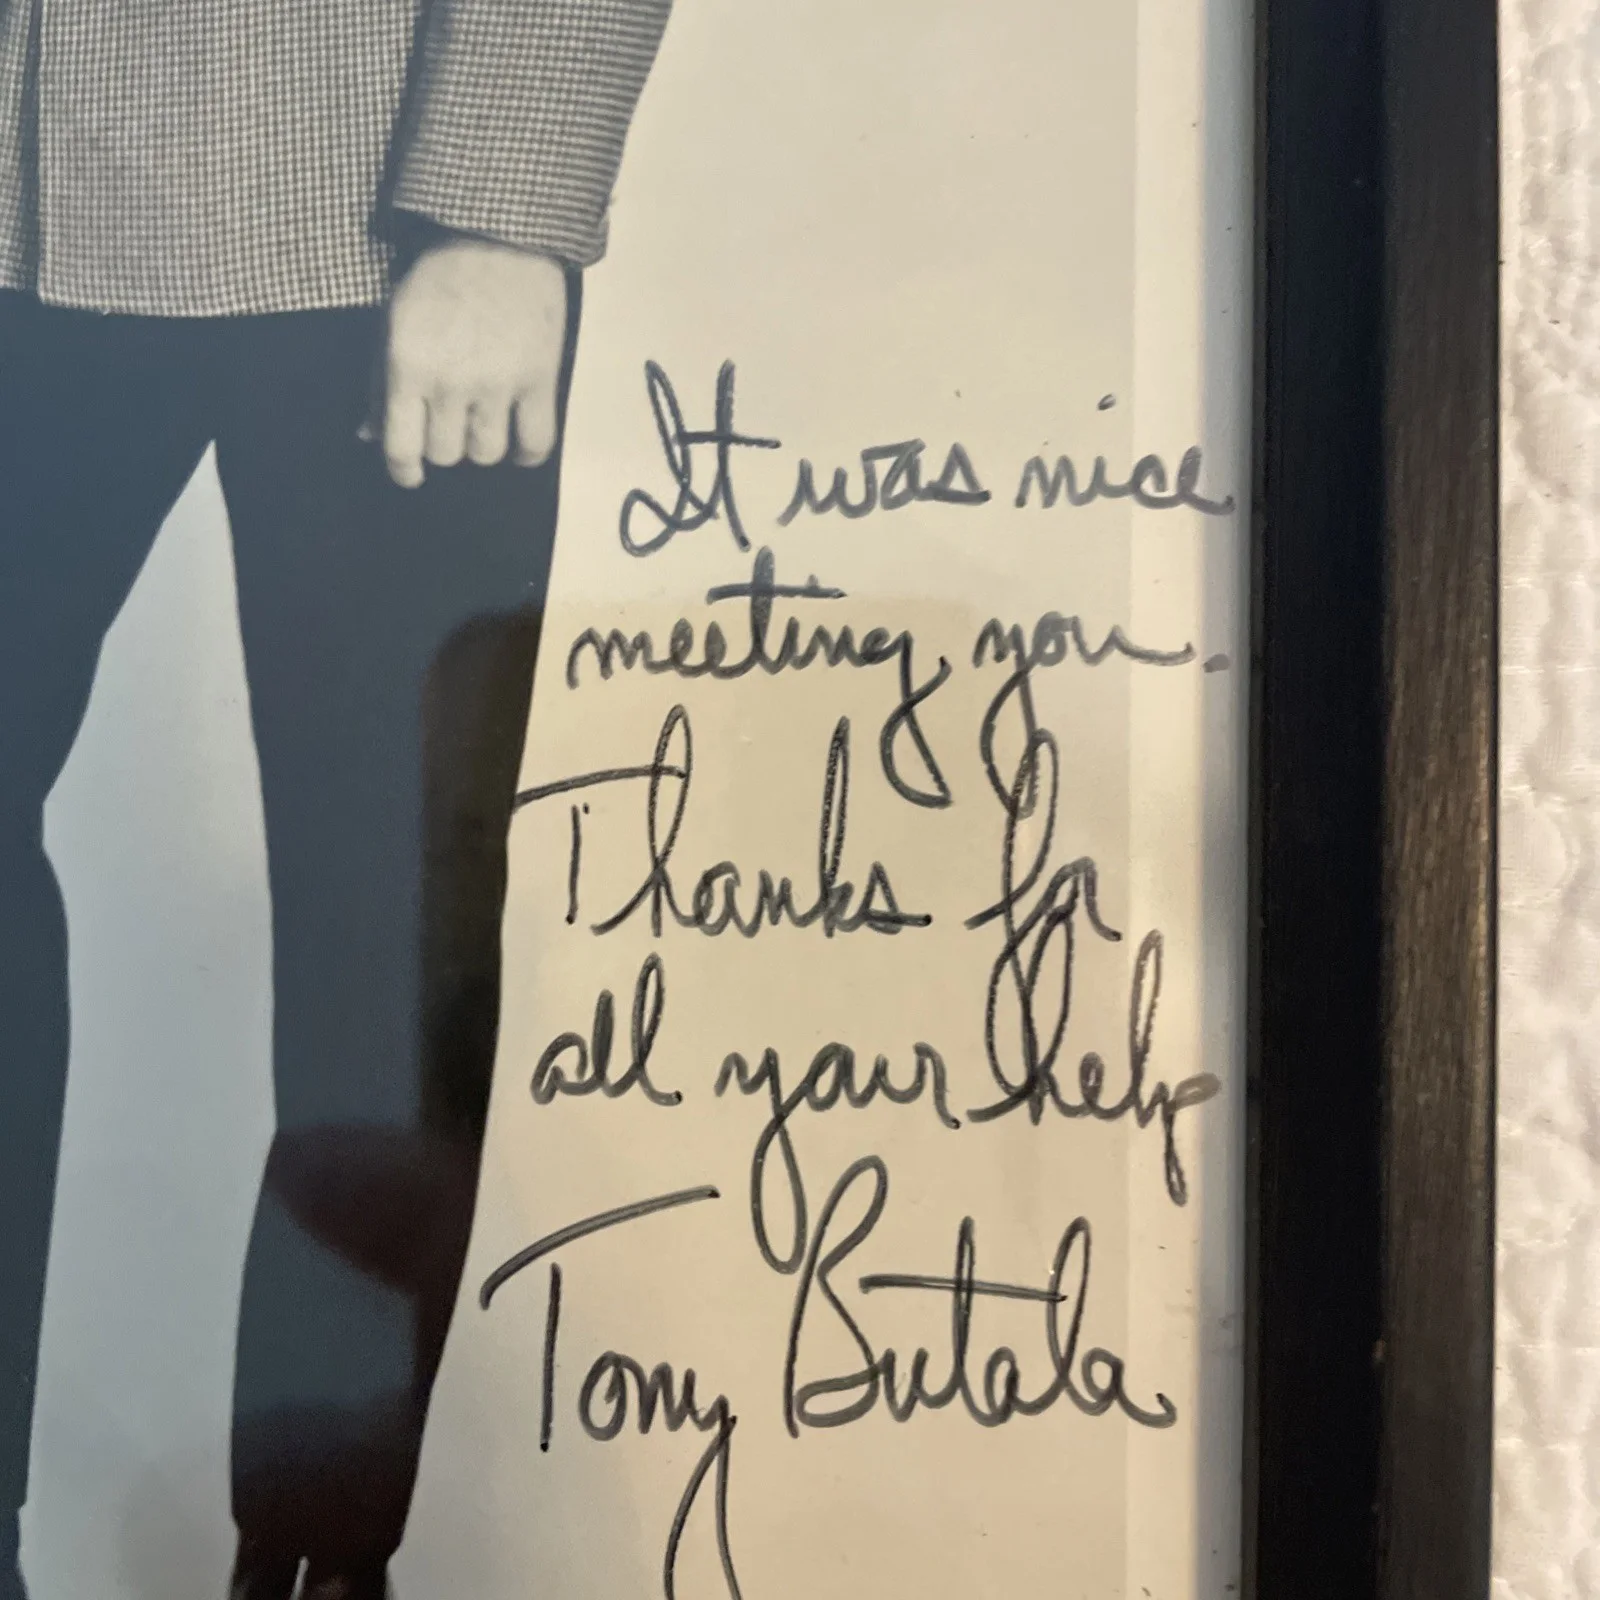 It was nice
meeting you.
Thanks for
all your help
Tony Butala